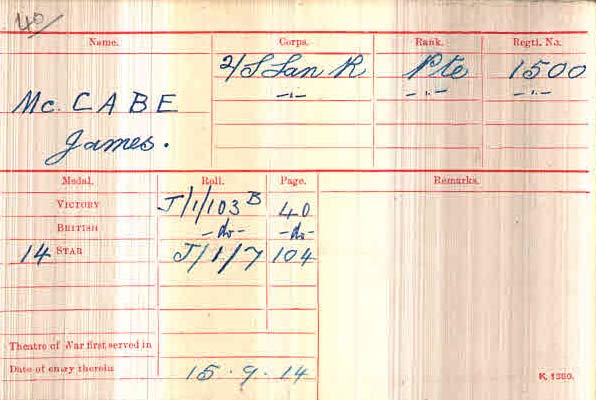 40
Name. Corps. Rank. Regtl. No.
2/S Lan R Pte 1500
-"- -"- -"-
Mc. CABE
James.
Medal. Roll. Page. Remarks.
VICTORY J/1/103 B 40
BRITISH -do- -do-
14 STAR J/1/7 104
Theatre of War first served in
Date of entry therein 15.9.14
K. 1380.